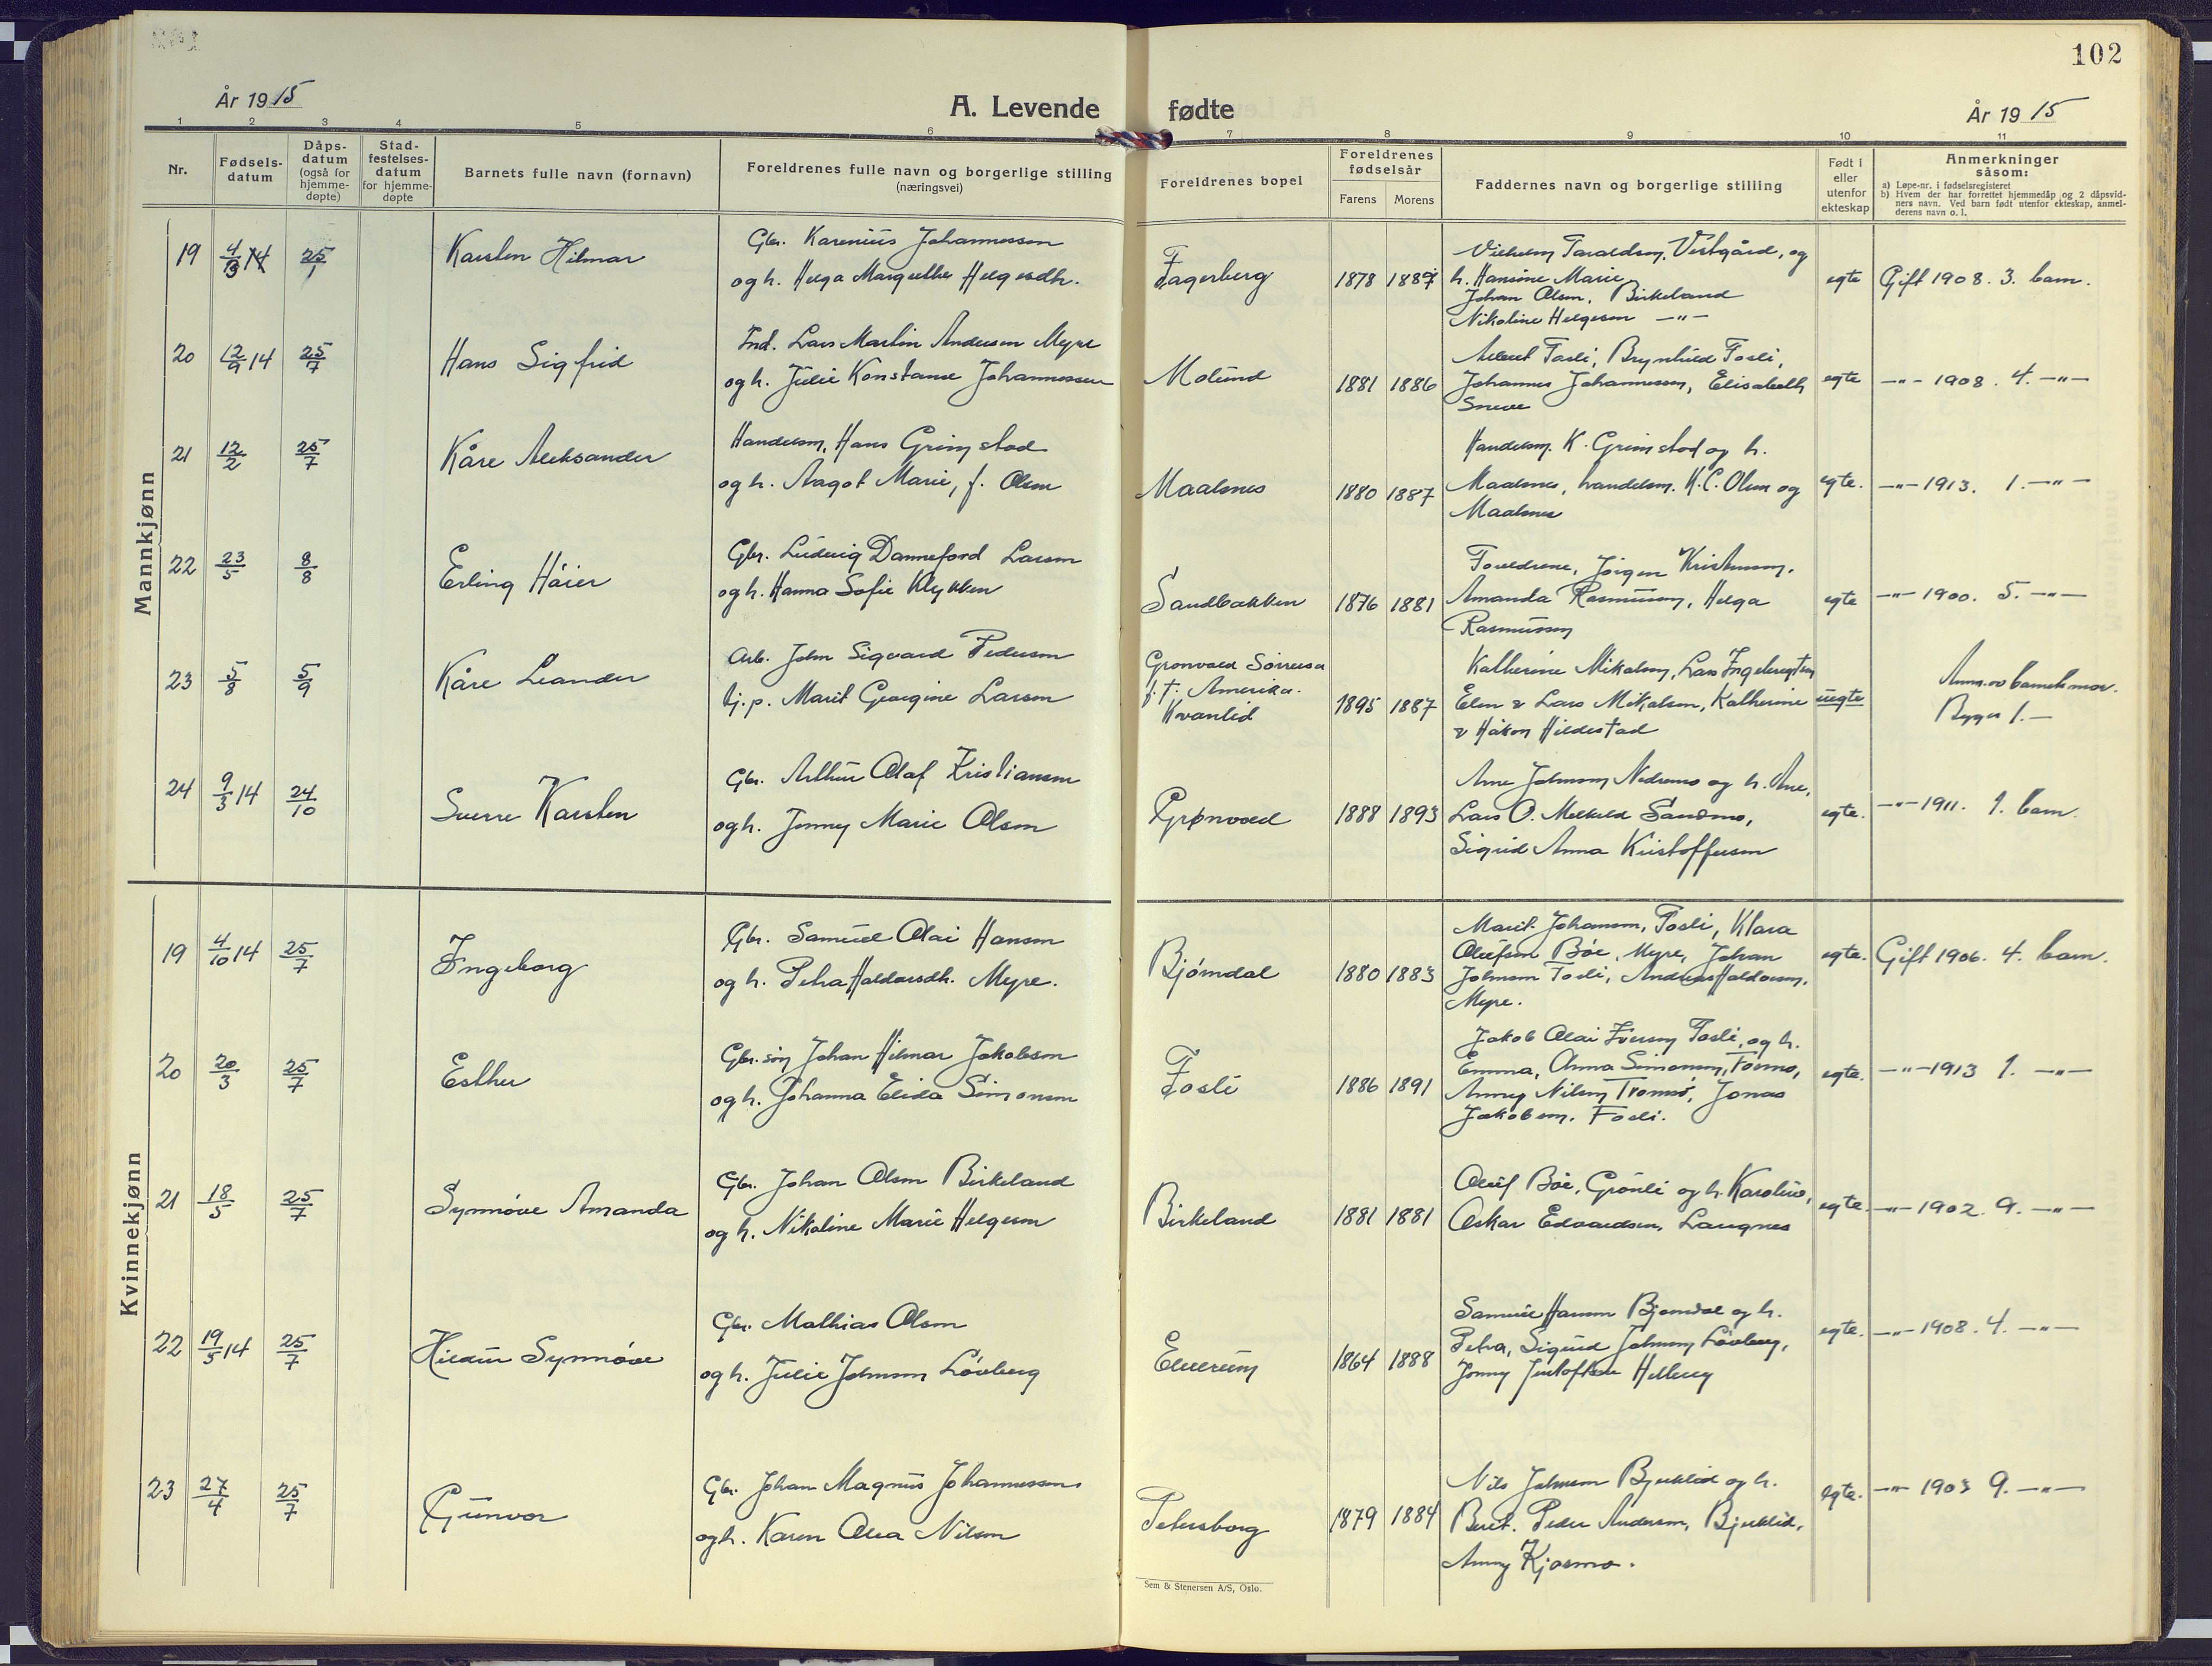 102
År 1915
A. Levende fødte
År 1915
1 2 3 4 5 6 7 8 9 10 11
Nr.
Fødsels-
datum
Dåps-
datum
(også for
hjemme-
døpte)
Stad-
festelses-
datum
for hjemme-
døpte
Barnets fulle navn (fornavn)
Foreldrenes fulle navn og borgerlige stilling
(næringsvei)
Foreldrenes bopel
Foreldrenes
fødselsår
Farens Morens
Faddernes navn og borgerlige stilling
Født i
eller
utenfor
ekteskap
Anmerkninger
såsom:
a) Løpe-nr. i fødselsregisteret
b) Hvem der har forrettet hjemmedåp og 2 dåpsvid-
ners navn. Ved barn født utenfor ekteskap, anmel-
derens navn o. l.
Mannkjønn
19 25/1 Karsten Hilmar
Gbr. Karenius Johannessen
og h. Helga Margrethe Helgesdtr.
Fagerberg 1878
Vilhelm Taraldsen, Vestgård, og
h. Hansine Marie
Johan Olsen, Birkeland
Nikoline Helgesen —"—
egte Gift 1908. 3. barn.
20 12/9 14 25/7 Hans Sigfrid
Ind. Lars Martin Andersen Myre
og h. Julie Konstanse Johannessen
Molund 1881 1886
Fosli, Brynhild Fosli,
Johannes Johannessen, Elisabeth
egte —"— 1908. 4. —"—
21 12/2 25/7 Kåre Aleksander
Handelsm. Hans Grimstad
og h. Aagot Marie, f. Olsen
Maalsnes 1880 1887
Handelsm. K. Grimstad og h.
Maalsnes, handelsm. K.C. Olsen og
Maalsnes
egte. —"— 1913. 1. —"—
22 23/5 8/8 Erling Håier
Gbr. Ludvig Danneford Larsen
og h. Hanna Sofie Klykken
Sandbakken 1876 1881
Foreldrene, Jørgen Kristensen,
Amanda Rasmussen, Helga
Rasmussen
egte —"— 1900. 5. —"—
23 5/8 5/9 Kåre Leander
Arb. John Sigvard Pedersen
tj.p. Marit Georgine Larsen
Grønvold Sørreisa
f. t. Amerika.
Kvanlid
1895 1887
Katherine Mikalsen, Lars Ingebrigtsen
Elen & Lars Mikalsen, Katherine
& Håkon Hildestad
uegte
Anm. av barnets mor.
24 9/3 14 24/10 Sverre Karsten
Gbr. Arthur Olaf Kristiansen
og h. Jenny Marie Olsen
Grønvold 1888 1893
Arne Johnsen Nedremo og h. Ane,
Lars O. Sandmo,
Sigrid Anna Kristoffersen
egte. —"— 1911. 1. barn.
Kvinnekjønn
19 4/10 14 25/7 Ingeborg
Gbr. Samuel Olai Hansen
og h. Petra Haldorsdtr. Myre.
Bjørndal 1880 1883
Marit Johansen, Fosli, Klara
Olufsen Bøe, Myre, Johan
Johnsen Fosli, Andreas Haldorsen,
Myre.
egte. Gift 1906. 4. barn.
20 20/3 25/7 Esther
Gbr. søn Johan Hilmar Jakobsen
og h. Johanna Elida Simonsen
Fosli 1886 1891
Jakob Olai Iversen Fosli, og h.
Emma, Anna Simonsen, Formo,
Anny Nilsen Tromsø, Jonas
Jakobsen, Fosli.
egte. —"— 1913 1. —"—
21 18/5 25/7 Synnøve Amanda
Gbr. Johan Olsen Birkeland
og h. Nikoline Marie Helgesen
Birkeland 1881 1881
Oluf Bøe, Grønli og h. Karoline,
Oskar Edvardsen, Laugnes
egte. —"— 1902. 9. —"—
22 19/5 14 25/7 Hildur Synnøve
Gbr. Mathias Olsen
og h. Julie Johnsen Løvberg
Elverum 1864 1888
Samuel Hansen Bjørndal og h.
Petra, Sigurd Johnsen Løvberg,
Jenny
egte. —"— 1908. 4. —"—
23 27/4 25/7 Gunvor
Gbr. Johan Magnus Johannessen
og h. Karen Olea Nilsen
Petersborg 1879 1884
Nils Johnsen Bjerklid og h.
Berit. Peder Andersen, Bjerklid,
Anny Kjosmo.
egte. —"— 1903 9. —"—
Sem & Stenersen A/S, Oslo.